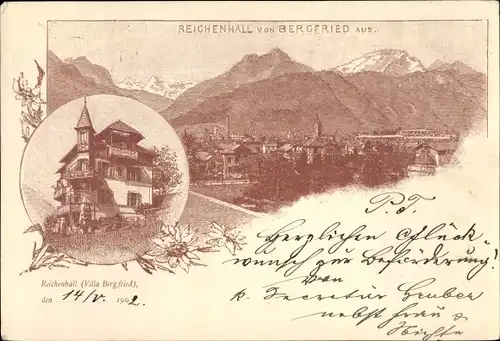 REICHENHALL VON BERGFRIED AUS.
P. T.
Herzlichen Glück-
wunsch zur Beförderung!
von
k. Secretär Gruber
nebst Frau &
Nichte
Reichenhall (Villa Bergfried),
den 14/V. 1902.